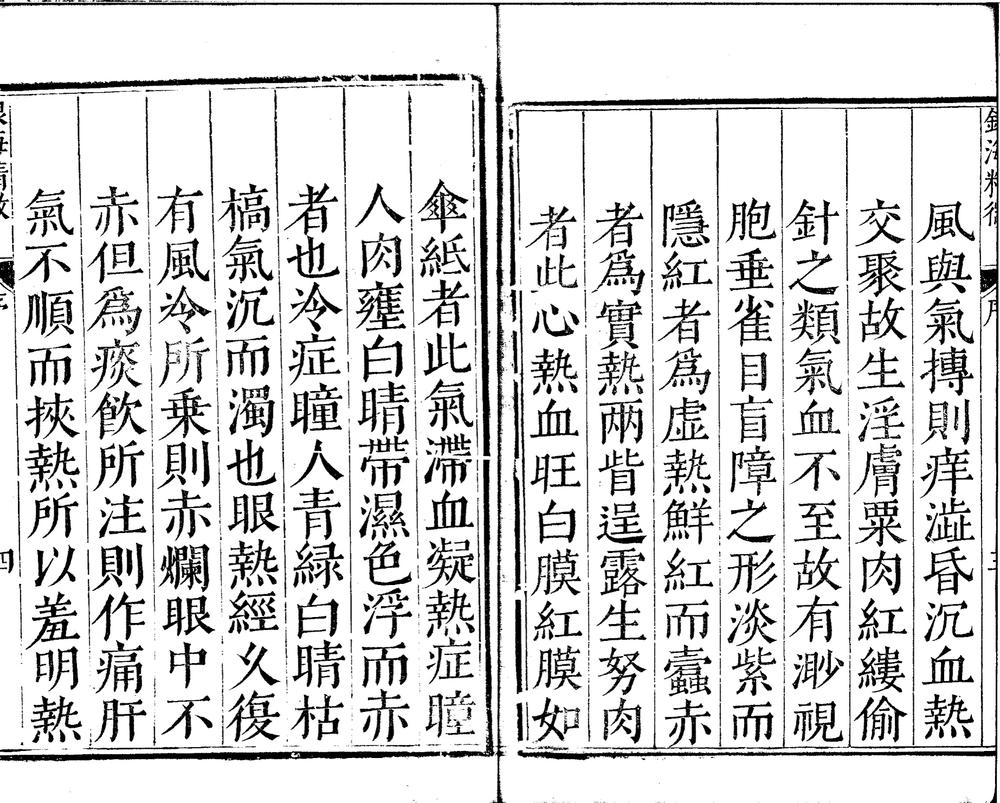 風與氣摶則痒澁昏沉血熱
交聚故生淫膚粟肉紅縷偷
針之類氣血不至故有渺視
胞垂雀目盲障之形淡紫而
隱紅者爲虛熱鮮紅而蠧赤
者爲實熱兩眥逞露生努肉
者此心熱血旺白膜紅膜如
傘紙者此氣滯血凝熱症瞳
人肉壅白睛帶濕色浮而赤
者也冷症瞳人青綠白睛枯
槁氣沉而濁也眼熱經久復
有風冷所乗則赤爛眼中不
赤但爲痰飲所注則作痛肝
氣不順而挾熱所以羞明熱
四